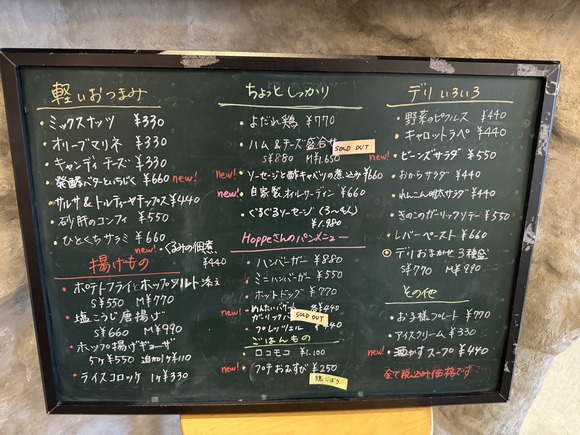 軽いおつまみ
・ミックスナッツ ¥330
・オリーブマリネ ¥330
・キャンディチーズ ¥330
・発酵バターといちじく ¥660
new! ・サルサ&トルティーヤチップス ¥440
・砂肝のコンフィ ¥550
・ひとくちサラミ ¥660
new! ・くるみの佃煮 ¥440
揚げもの
・ポテトフライとホップソルト添え
S¥550 M¥770
・塩こうじ唐揚げ
S¥660 M¥990
・ホップ揚げギョーザ
5ヶ¥550 追加1ヶ¥110
・ライスコロッケ 1ヶ¥330
ちょっとしっかり
・よだれ鶏 ¥770
・ハム&チーズ盛合せ SOLD OUT
S¥880 M¥1,650
new! ・ソーセージと酢キャベツの煮込み ¥660
new! ・自家製オイルサーディン ¥660
・ぐるぐるソーセージ (3〜4人)
¥1,980
Hoppeさんのパンメニュー
・ハンバーガー ¥880
・ミニハンバーガー ¥550
・ホットドッグ ¥770
new! ・めんたいバター 各¥440
ガーリックバター SOLD OUT
・プレッツェル ¥440
ごはんもの
・ロコモコ ¥1,100
new! ・プチおむすび ¥250
鶏ごぼう
デリいろいろ
・野菜のピクルス ¥440
・キャロットラペ ¥440
new! ・ビーンズサラダ ¥550
・おからサラダ ¥440
・れんこん明太サラダ ¥440
・きのこのガーリックソテー ¥550
・レバーペースト ¥660
◎デリおまかせ3種盛
S¥770 M¥990
その他
・お子様プレート ¥770
・アイスクリーム ¥330
new! ・酒かすスープ ¥440
全て税込み価格です